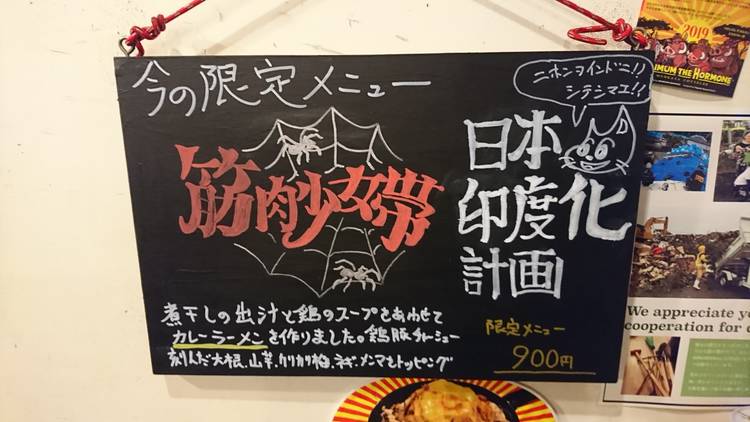 今の限定メニュー
ニホンヲインドニ!!
シテシマエ!!
筋肉少女帯
日本
印度化
計画
煮干しの出汁と鶏のスープをあわせて
カレーラーメンを作りました。鶏豚チャーシュー
刻んだ大根、山芋、カリカリ梅、ネギ、メンマをトッピング
限定メニュー
900円
2019
IMUM THE HORMONE
We appreciate yo
cooperation for